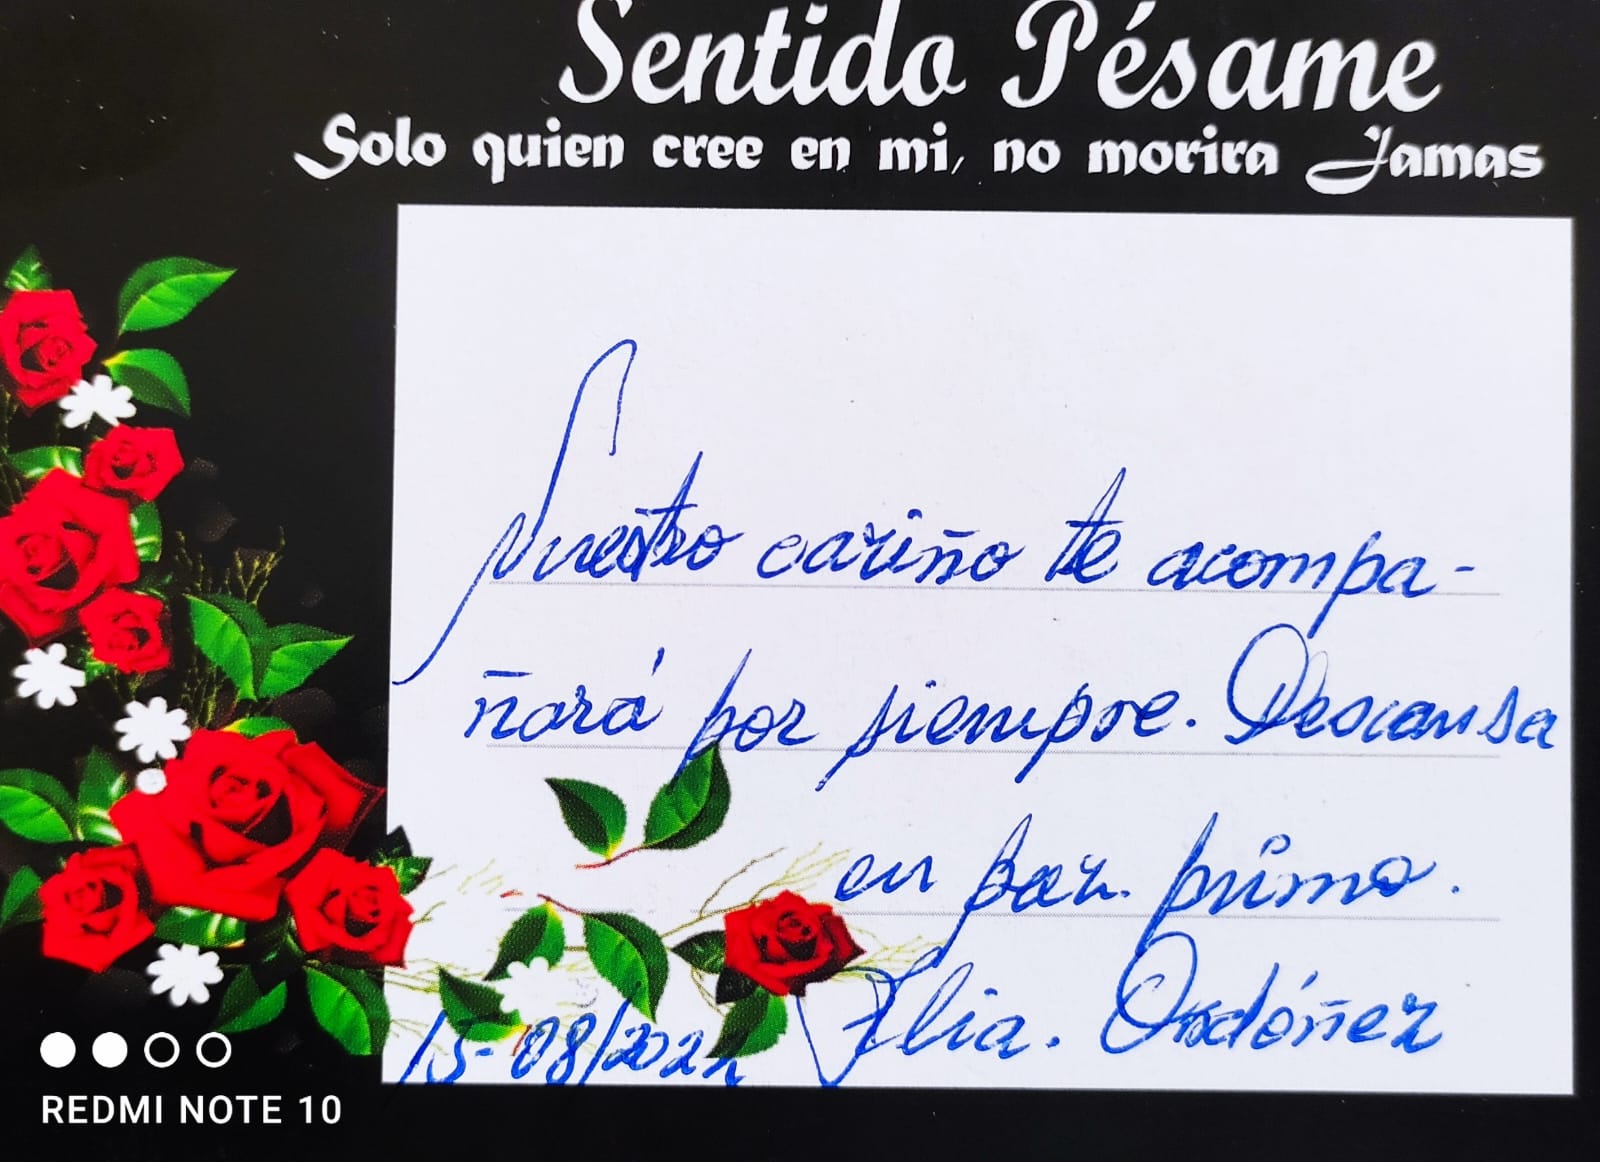 Sentido Pésame
Solo quien cree en mi, no morira Jamas
Nuestro cariño te acompa-
ñará por siempre. Descansa
en paz primo.
Flia. Ordóñez
15-08/2021
REDMI NOTE 10